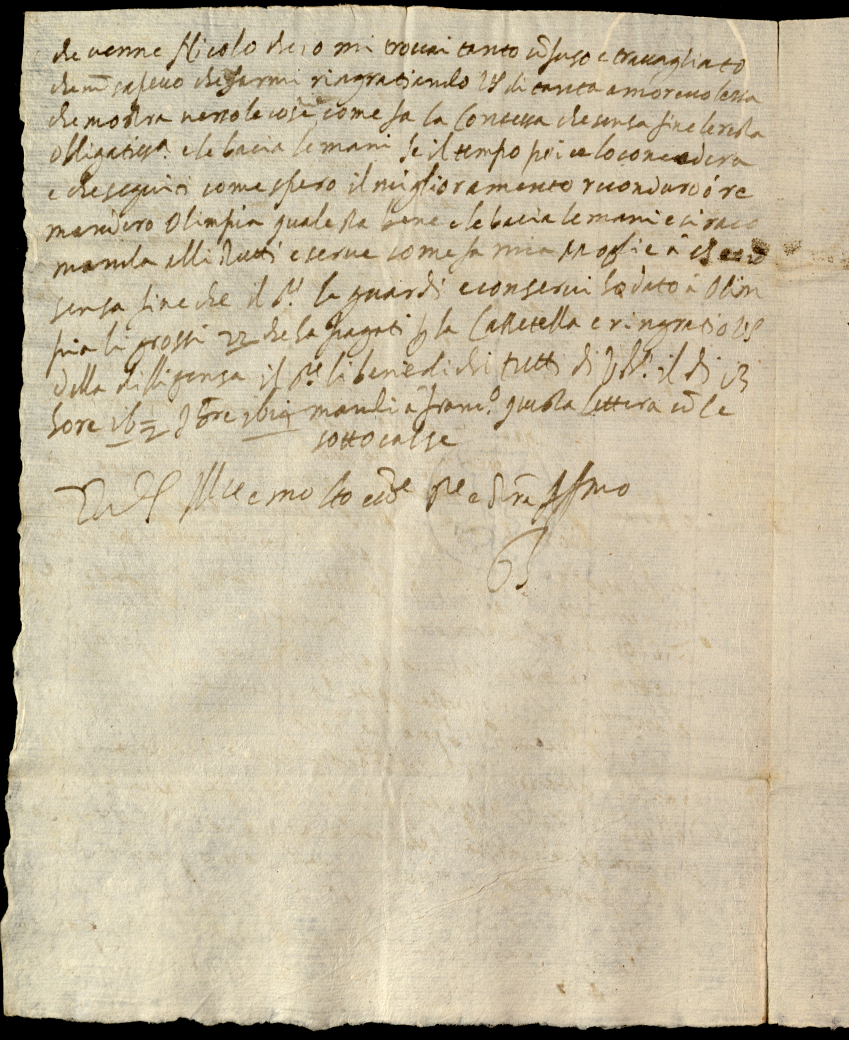 che venne Nicolo che io mi trovai tanto cõfuso e travagliato
che nõ sapevo che farmi ringratiando VS di tanta amorevolezza
che mostra verso le cose come fa la Contessa che senza fine le resta
obligatissa. e le bacia le mani se il tempo poi ce lo concedera
e che seguiti come spero il miglioramento recondurò ó re
manderò Olimpia quale sta bene e le bacia le mani e si raco
manda alli Putti e serve come fa mia Moglie à VS
senza fine che il Sr. le guardi e conservi ho dato à Olim
pia li grossi 22 che ha pagati p la Cassetella e ringratio VS
della diligenza il Sr. li benedichi tutti di il di 13
hore 16½ 9bre 1614 mandi a Franco. questa lettera cõ le
sotto calze
Di VS Illre e molto ecc.te re e affmo